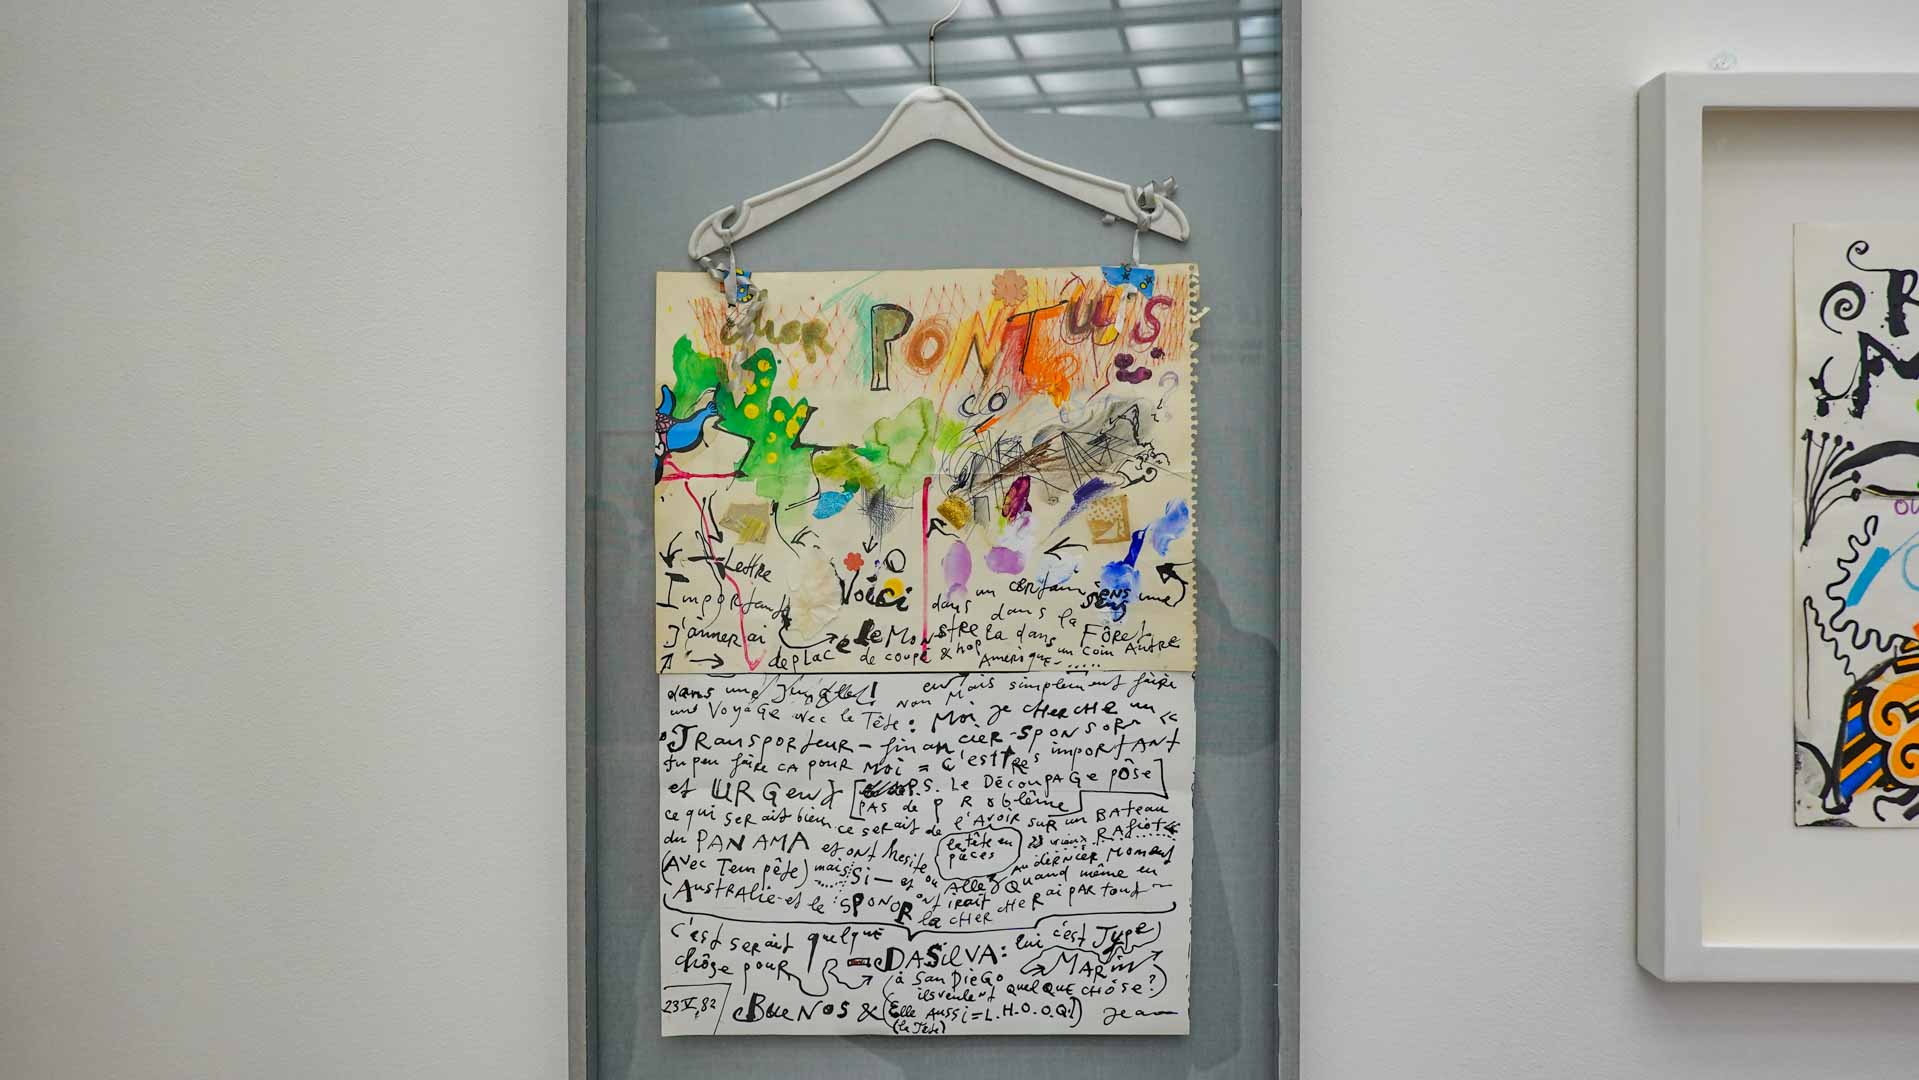 cher PONTUS
Lettre
Importante Voici dans un certain sens une
J'aimerai le Monstre la dans la Fôret
deplace de coupe & hop Amérique un coin Autre
dans une Jungle! non Mais simplement faire
une Voyage avec la Tête: Moi je cherche un
Transporteur-financier-sponsor
tu peu faire ca pour moi = C'est tres important
et URGent [P.S. Le Découpage pôse
pas de problême]
ce qui serait bien ce serait de l'Avoir sur un Bateau
du PANAMA et ont hesite la tête en pièces vieux Rafiot
(Avec Tempête) mais Si — et ou au dernier Moment
Aller Quand même en
Australie et le SPONOR ont irait la chercher ai partout
C'est serait quelque
chôse pour DASILVA: lui c'est Type
à San Diego Marin
ils veulent quelque chôse?)
23 V, 82 Buenos & (Elle Aussi = L.H.O.O.Q.!) Jean
(la Tête)
R
ou